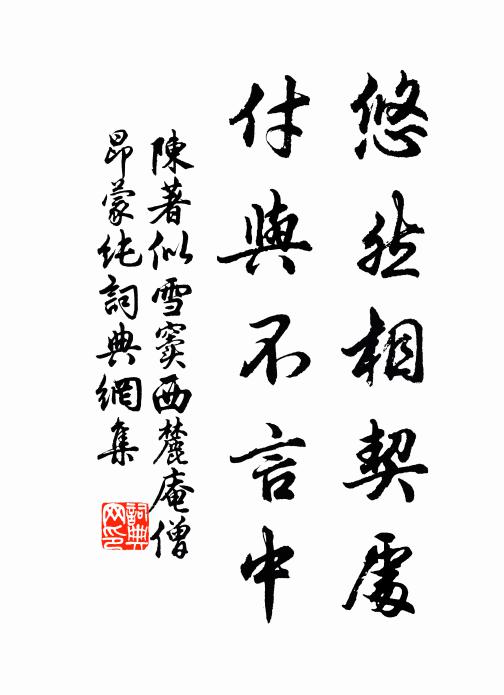 悠然相契處
付與不言中
陳著似雪竇西麓庵僧
昂蒙纯詞典網集
詞典
网印